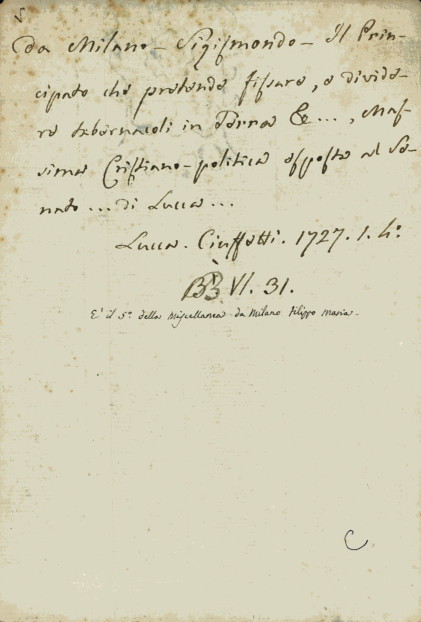 5
Da Milano - Sigismondo - Il Prin-
cipato che pretende fissare, e divide-
re tabernacoli in Terra &c..., Mas-
sima Cristiano-politica esposta al Se-
nato ... di Lucca ...
Lucca. Ciuffetti. 1727. 1. 4°
BB. VI. 31.
E' il 5° della Miscellanea da Milano Filippo Maria.
C